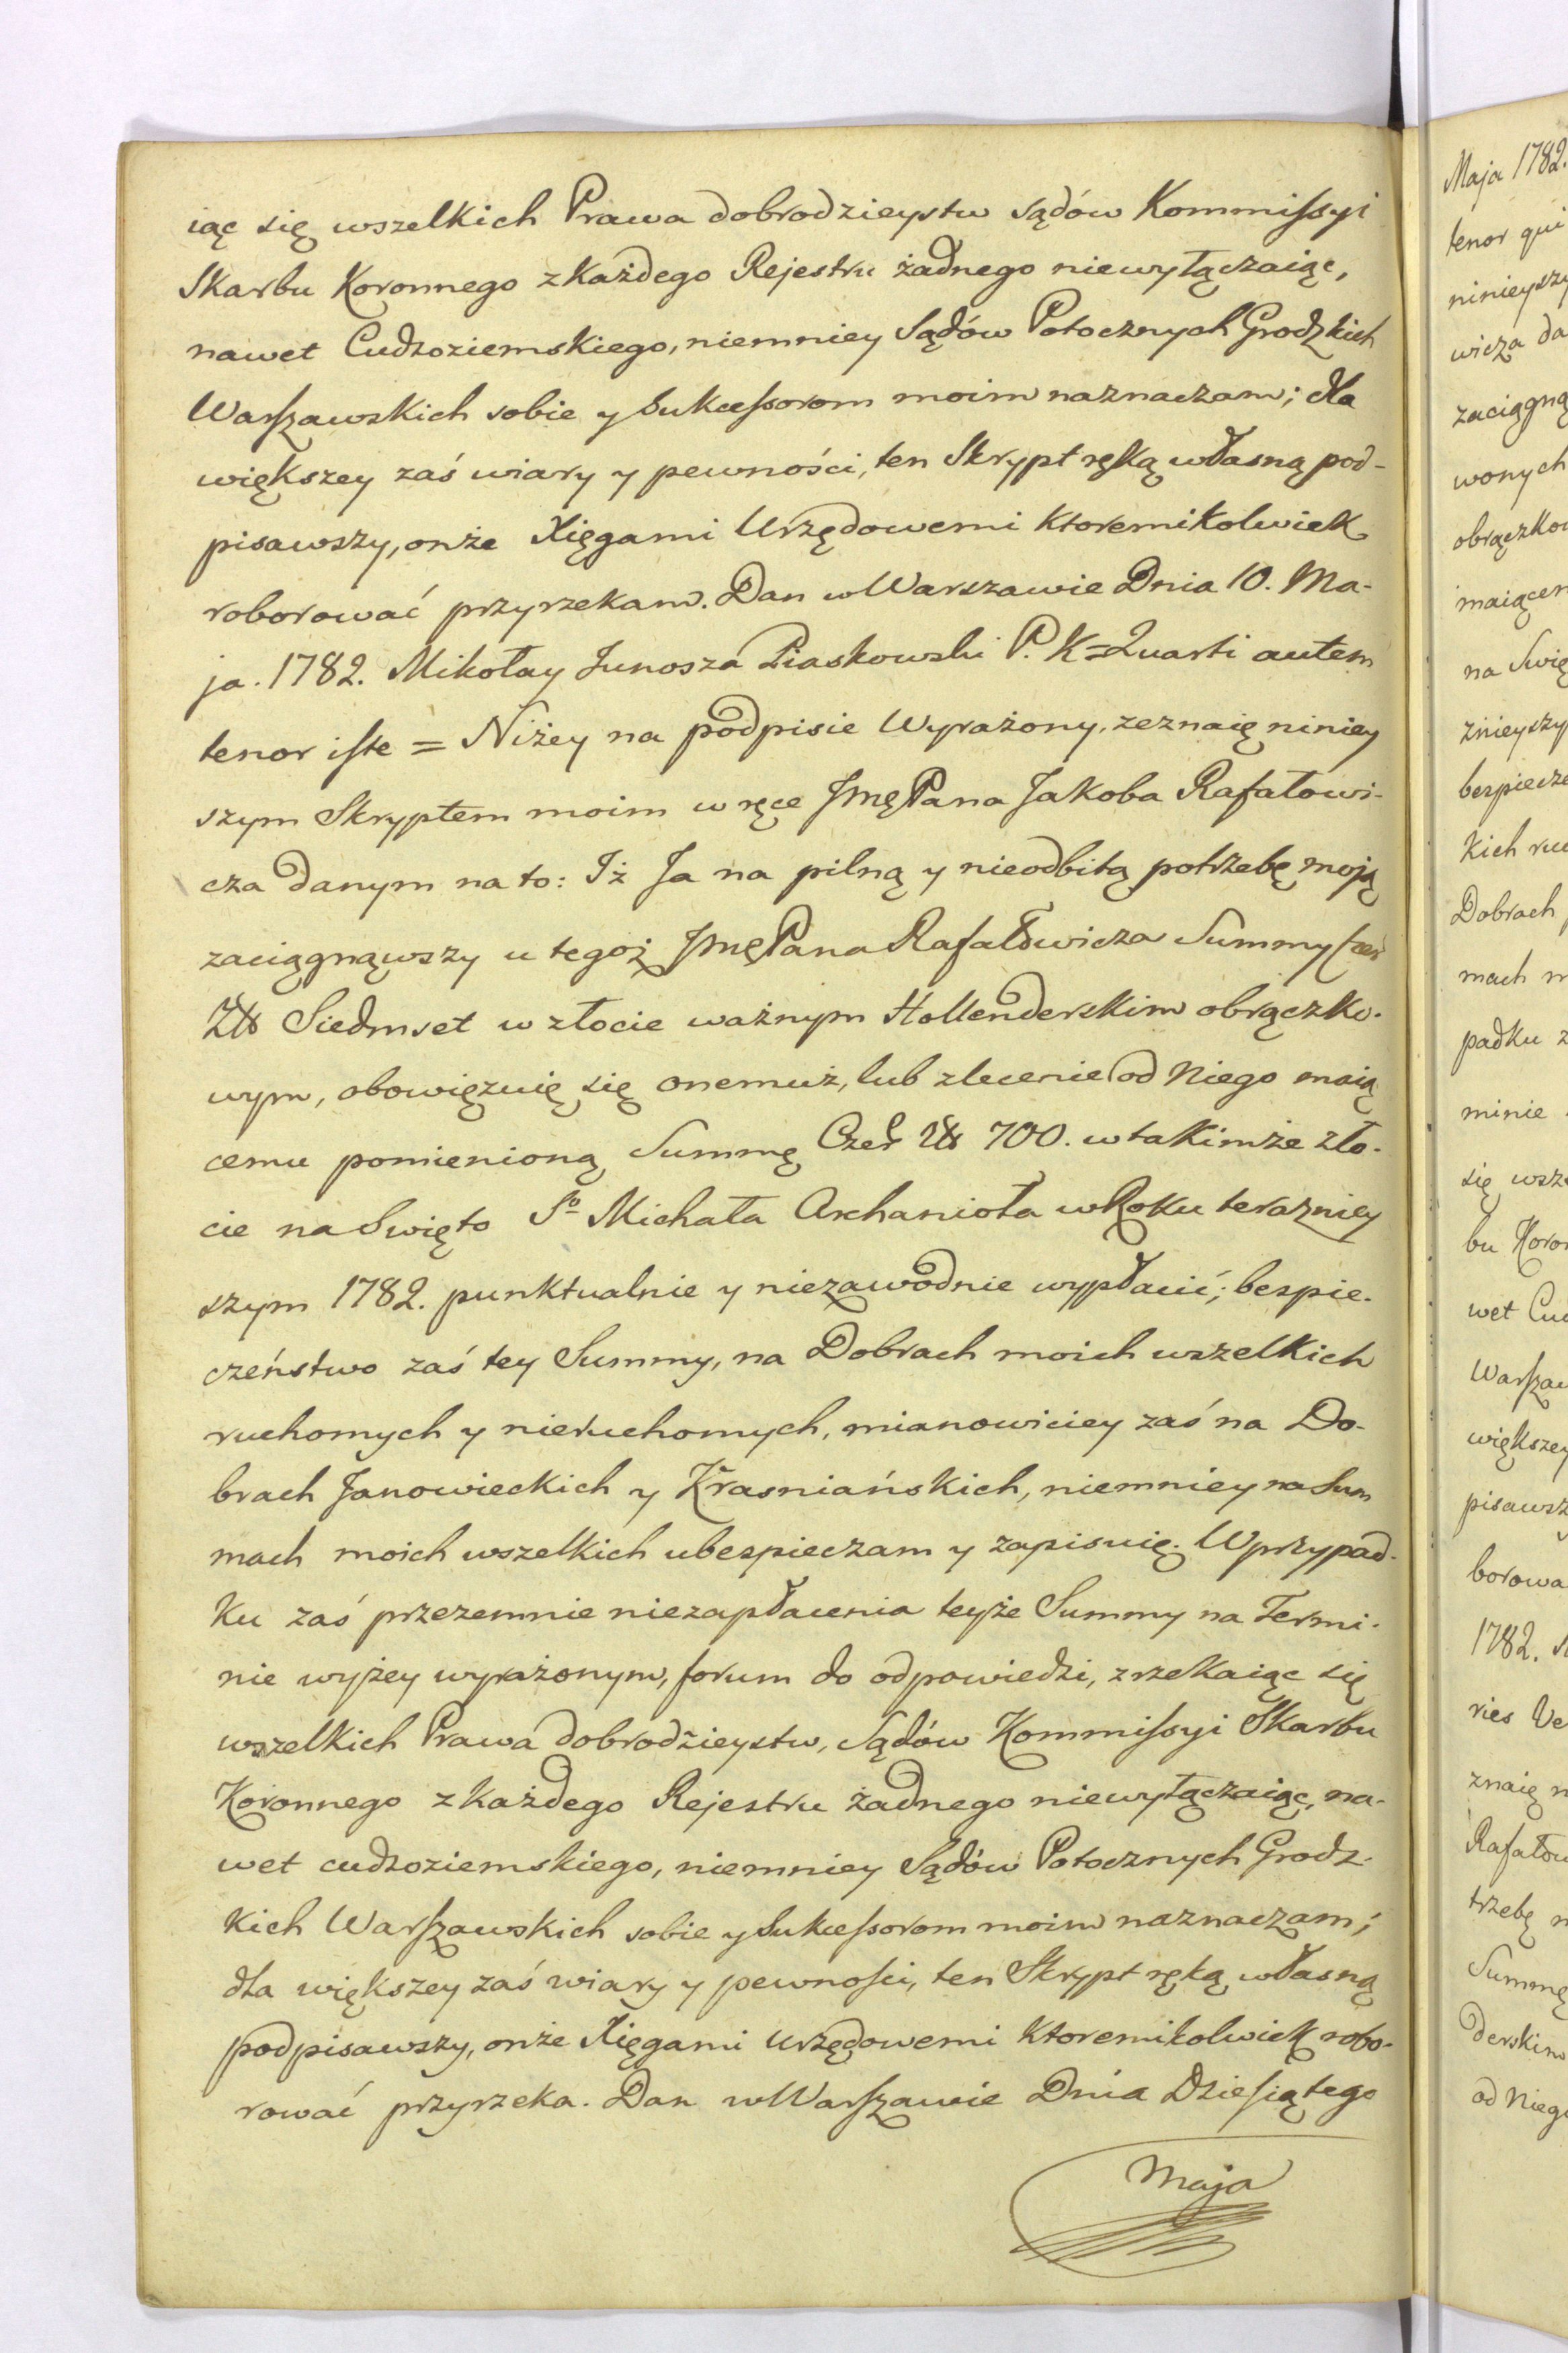 iąc się wszelkich Prawa dobrodzieystw sądów Kommiſsyi
Skarbu Koronnego z każdego Rejestru żadnego niewyłączaiąc,
nawet Cudzoziemskiego, niemniey Sądów Potocznych Grodzkich
Warſzawskich sobie y Sukceſsorom moim naznaczam; dla
większey zaś wiary y pewności, ten Skrypt ręką własną pod-
pisawszy, onże Xięgami Urzędowemi ktoremikolwiek
roborować przyrzekam. Dan w Warszawie Dnia 10. Ma-
ja. 1782. Mikołay Junosza Piaskowski P. K = Quarti autem
tenor iſte = Niżey na podpisie Wyrażony, zeznaię niniey
szym Skryptem moim w ręce JmęPana Jakoba Rafałowi-
cza danym na to: Iż Ja na pilną y nieodbitą potrzebę moją
zaciągnąwszy u tegoż JmęPana Rafałowicza Summy Czer
Zł Siedmset w złocie ważnym Hollenderskim obrączko-
wym, obowięzuię się onemuż, lub zlecenie od Niego maią
cemu pomienioną Summę Czer Zł 700. w takimże zło-
cie na Swięto So Michała Archanioła w Roku terazniey
szym 1782. punktualnie y niezawodnie wypłacić; bespie-
czeństwo zaś tey Summy, na Dobrach moich wszelkich
ruchomych y nieruchomych, mianowiciey zaś na Do-
brach Janowieckich y Krasniańskich, niemniey na Sum
mach moich wszelkich ubespieczam y zapisuię. W przypad-
ku zaś przezemnie niezapłacenia teyże Summy na Termi-
nie wyżey wyrażonym, forum do odpowiedzi, zrzekaiąc się
wszelkich Prawa dobrodzieystw, Sądów Kommiſsyi Skarbu
Koronnego z każdego Rejestru żadnego niewyłączaiąc, na-
wet cudzoziemskiego, niemniey Sądów Potocznych Grodz-
kich Warſzawskich sobie y Sukceſsorom moim naznaczam;
dla większey zaś wiary y pewnoſci, ten Skrypt ręką własną
podpisawszy, onże Xięgami urzędowemi ktoremikolwiek robo-
rować przyrzeka. Dan w Warſzawie Dnia Dzieſiątego
Maja
Maja 1782.
tenor qui
ninieyszy
wicza da
zaciągną
wonych
obrączkow
maiącem
na Swię
znieyszy
bezpiecze
kich ruc
Dobrach
mach m
padku z
minie
się wsze
bu Koron
wet Cud
Warſzaw
większey
pisawsz
borowa
1782.
ries Ve
znaię n
Rafałow
trzebę m
Summę
derskim
od Niego